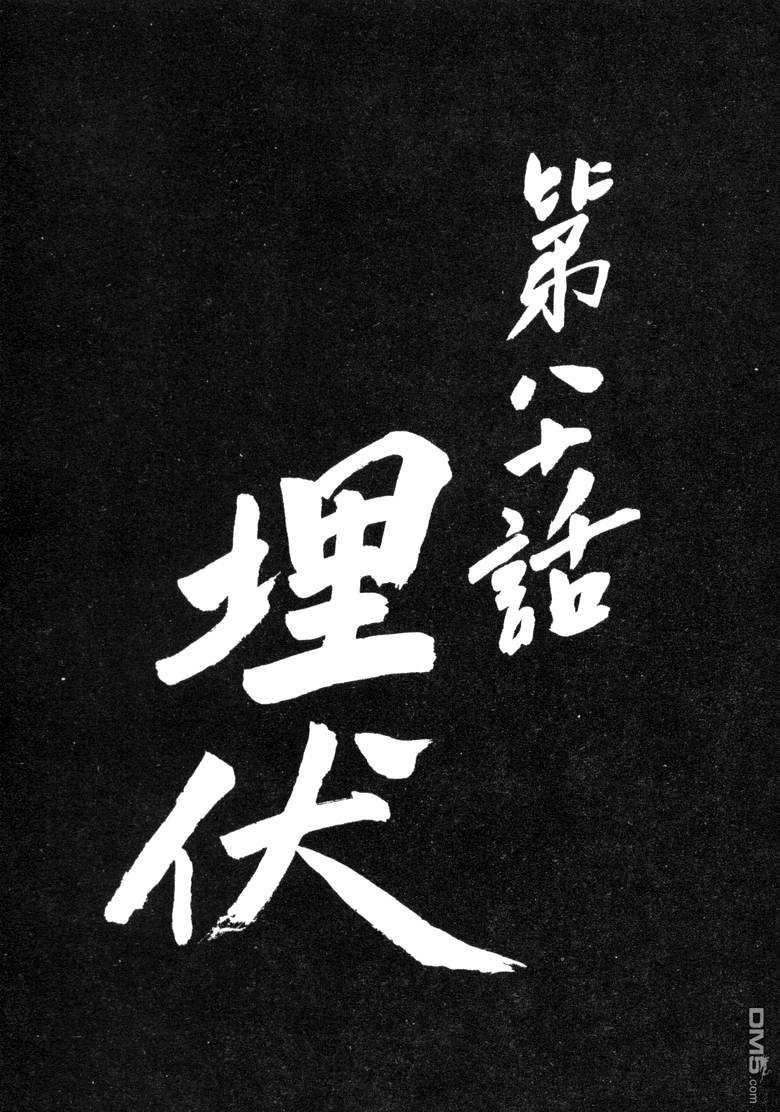 第八十話
埋伏
DM5.com